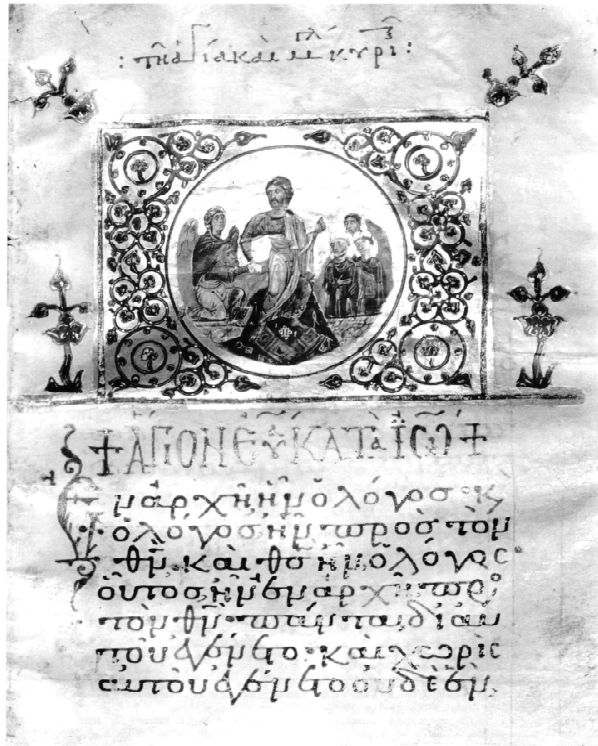 : τῆ ἁγία καὶ μ̅ πλ κυρι :
+ ἍΓΙΟΝ ΕΥ ΚΑΤᾺ ἸΩ +
Ἐν ἀρχῆ ἦν ὁ λόγος· κ̀
ὁ λόγος ἦν πρὸς τὸν
θν̅· καὶ θς̅ ἦν ὁ λόγος·
οὗτος ἦν ἐν ἀρχῆ πρὸ
τὸν θν̅· πάντα δι' αυ
τοῦ ἐγένετο· καὶ χωρὶς
αυτοῦ ἐγένετο οὐδὲ ἕν,